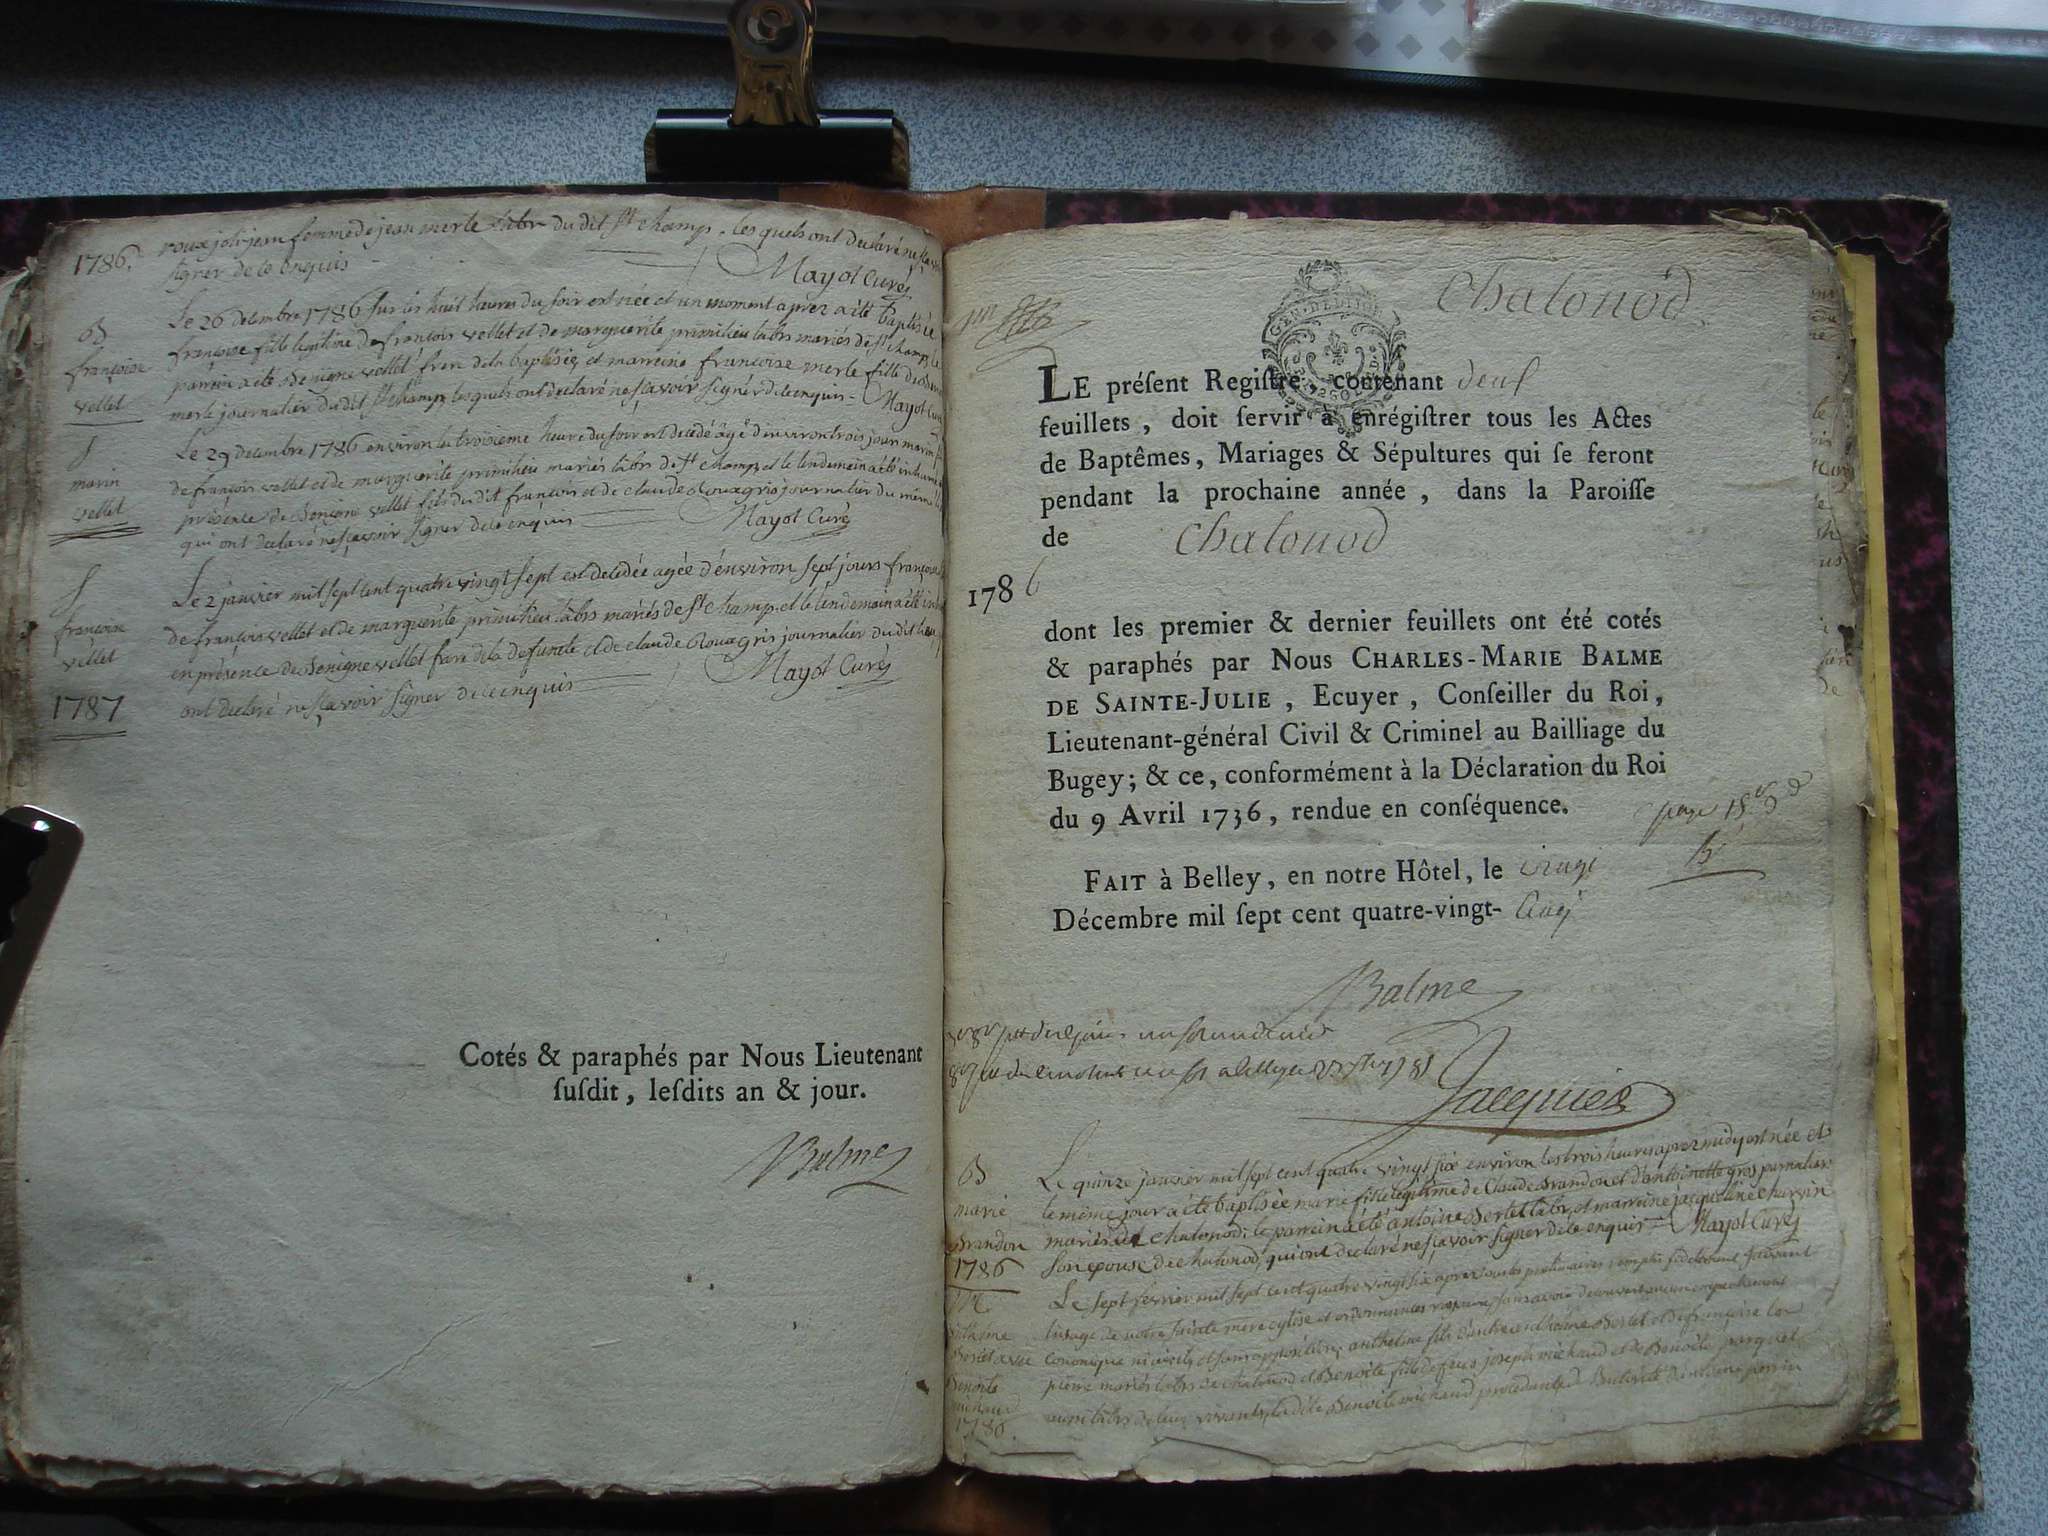 1786. roux joli jean femme de jean merle labr du dit St champ. les quels ont declaré ne sçavoir
signer de ce enquis Mayot Curé
Le 26 decembre 1786 sur les huit heures du soir est née et un moment aprez a été baptisée
B françoise fille legitime de françois vellet et de marguerite primilieu labrs mariés de St champ, le
françoise parrein a été Benigne vellet frere de la baptisée, et marreine françoise merle fille de
vellet merle journalier du dit St champ, les quels ont declaré ne sçavoir signer de ce enquis - Mayot Curé
S Le 29 decembre 1786 environ la troisieme heure du soir est decedé âgé d'environ trois jours marin
marin de françois vellet et de marguerite primilieu mariés labrs de St champ, et le lendemain a été inhumé
vellet présence de Benigne vellet fils du dit françois et de claude Rouxgris journalier du meme
qui ont declaré ne sçavoir signer de ce enquis Mayot Curé
S Le 2 janvier mil sept cent quatre vingt sept est decedée agée d'environ sept jours françoise
françoise de françois vellet et de marguerite primilieu labrs mariés de St champ, et le lendemain a été
vellet en présence de Benigne vellet frere de la defunte et de claude Rouxgris journalier du dit lieu
1787 ont declaré ne sçavoir signer de ce enquis Mayot Curé
Cotés & paraphés par Nous Lieutenant
ſuſdit, leſdits an & jour.
Balme
Chatonod
GEN. DE DIJON
LE préſent Regiſtre, contenant deux
feuillets, doit ſervir à enrégiſtrer tous les Actes
de Baptêmes, Mariages & Sépultures qui ſe feront
pendant la prochaine année, dans la Paroiſſe
de Chatonod
1786
dont les premier & dernier feuillets ont été cotés
& paraphés par Nous CHARLES-MARIE BALME
DE SAINTE-JULIE, Ecuyer, Conſeiller du Roi,
Lieutenant-général Civil & Criminel au Bailliage du
Bugey; & ce, conformément à la Déclaration du Roi
du 9 Avril 1736, rendue en conſéquence.
FAIT à Belley, en notre Hôtel, le vingt
Décembre mil ſept cent quatre-vingt- cinq
Balme
Jacquier
B Le quinze janvier mil sept cent quatre vingt six environ les trois heures aprez midy est née et
marie le même jour a été baptisée marie fille legitime de Claude Brandon et d'antoinette gros journaliers
Brandon mariés de chatonod; le parrein a été antoine Bertet labr, et marreine jacqueline charvin
1786 son epouse de chatonod, qui ont declaré ne sçavoir signer de ce enquis - Mayot Curé
M Le sept fevrier mil sept cent quatre vingt six aprez toutes preliminaires remplis suivant
l'usage de notre sainte mere eglise et ordonnances sans avoir decouvert aucun empechement
Bertet avec canonique ni civil, et sans opposition, anthelme fils d'antoine Bertet et de françoise
Benoite pierre mariés labrs de chatonod et Benoite fille de feu joseph michaud et de Benoite
michaud la dite Benoite michaud
1786.